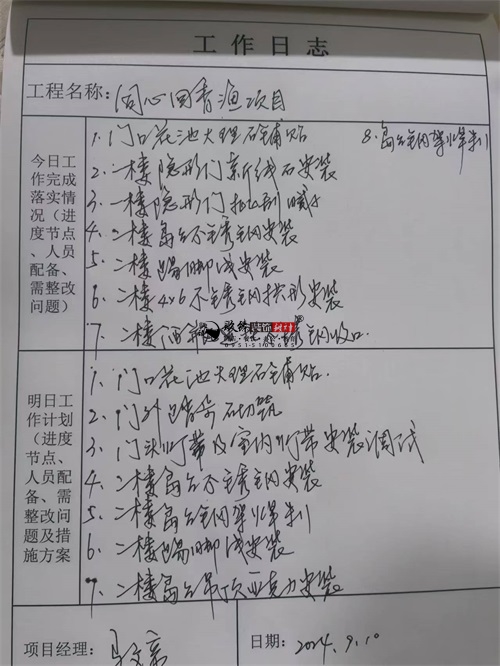 工作日志
工程名称: 同心回香渔项目
今日工作完成落实情况（进度节点、人员配备、需整改问题）
1. 门口花池大理石铺贴
8. 岛台钢架焊制
2. 一楼隐形门新线石安装
3. 一楼隐形门批刮腻子
4. 二楼岛台不锈钢安装
5. 二楼踢脚线安装
6. 二楼4x6不锈钢拱形安装
7. 二楼 不锈钢收口
装饰
0951-
明日工作计划（进度节点、人员配备、需整改问题及措施方案
1. 门口花池大理石铺贴.
2. 门外 石切筑
3. 门头灯带及室内灯带安装调试
4. 二楼岛台不锈钢安装
5. 二楼岛台钢架焊制
6. 二楼踢脚线安装
7. 二楼岛台吊顶亚克力安装
项目经理:
日期: 2024.9.10